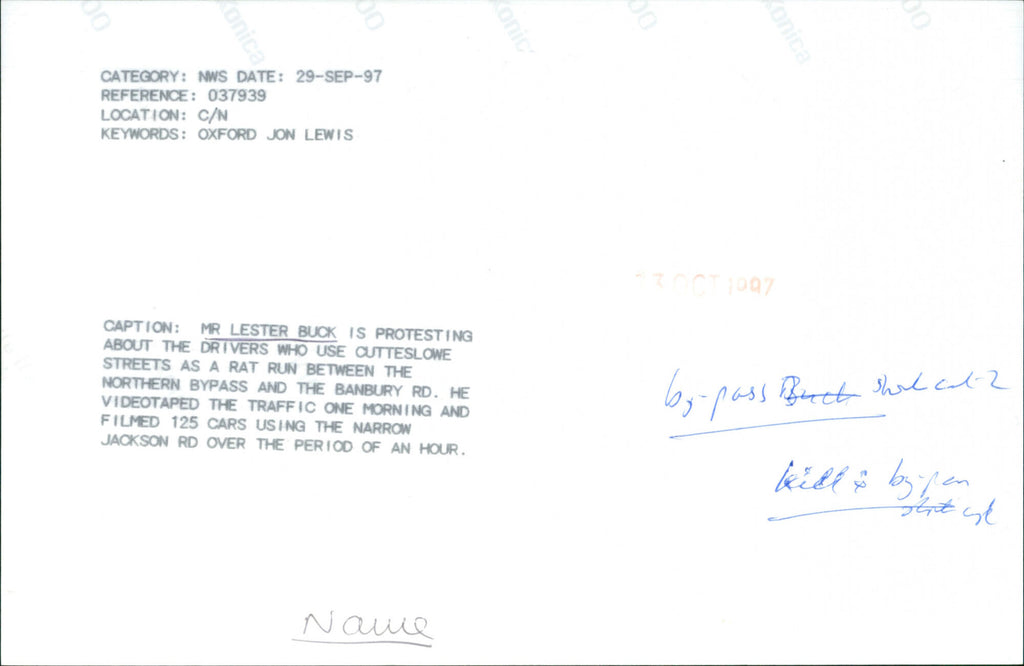 konica
konica
konica
CATEGORY: NWS DATE: 29-SEP-97
REFERENCE: 037939
LOCATION: C/N
KEYWORDS: OXFORD JON LEWIS
OCT 1997
CAPTION: MR LESTER BUCK IS PROTESTING
ABOUT THE DRIVERS WHO USE CUTTESLOWE
STREETS AS A RAT RUN BETWEEN THE
NORTHERN BYPASS AND THE BANBURY RD. HE
VIDEOTAPED THE TRAFFIC ONE MORNING AND
FILMED 125 CARS USING THE NARROW
JACKSON RD OVER THE PERIOD OF AN HOUR.
by-pass Buck
by-pass
Name